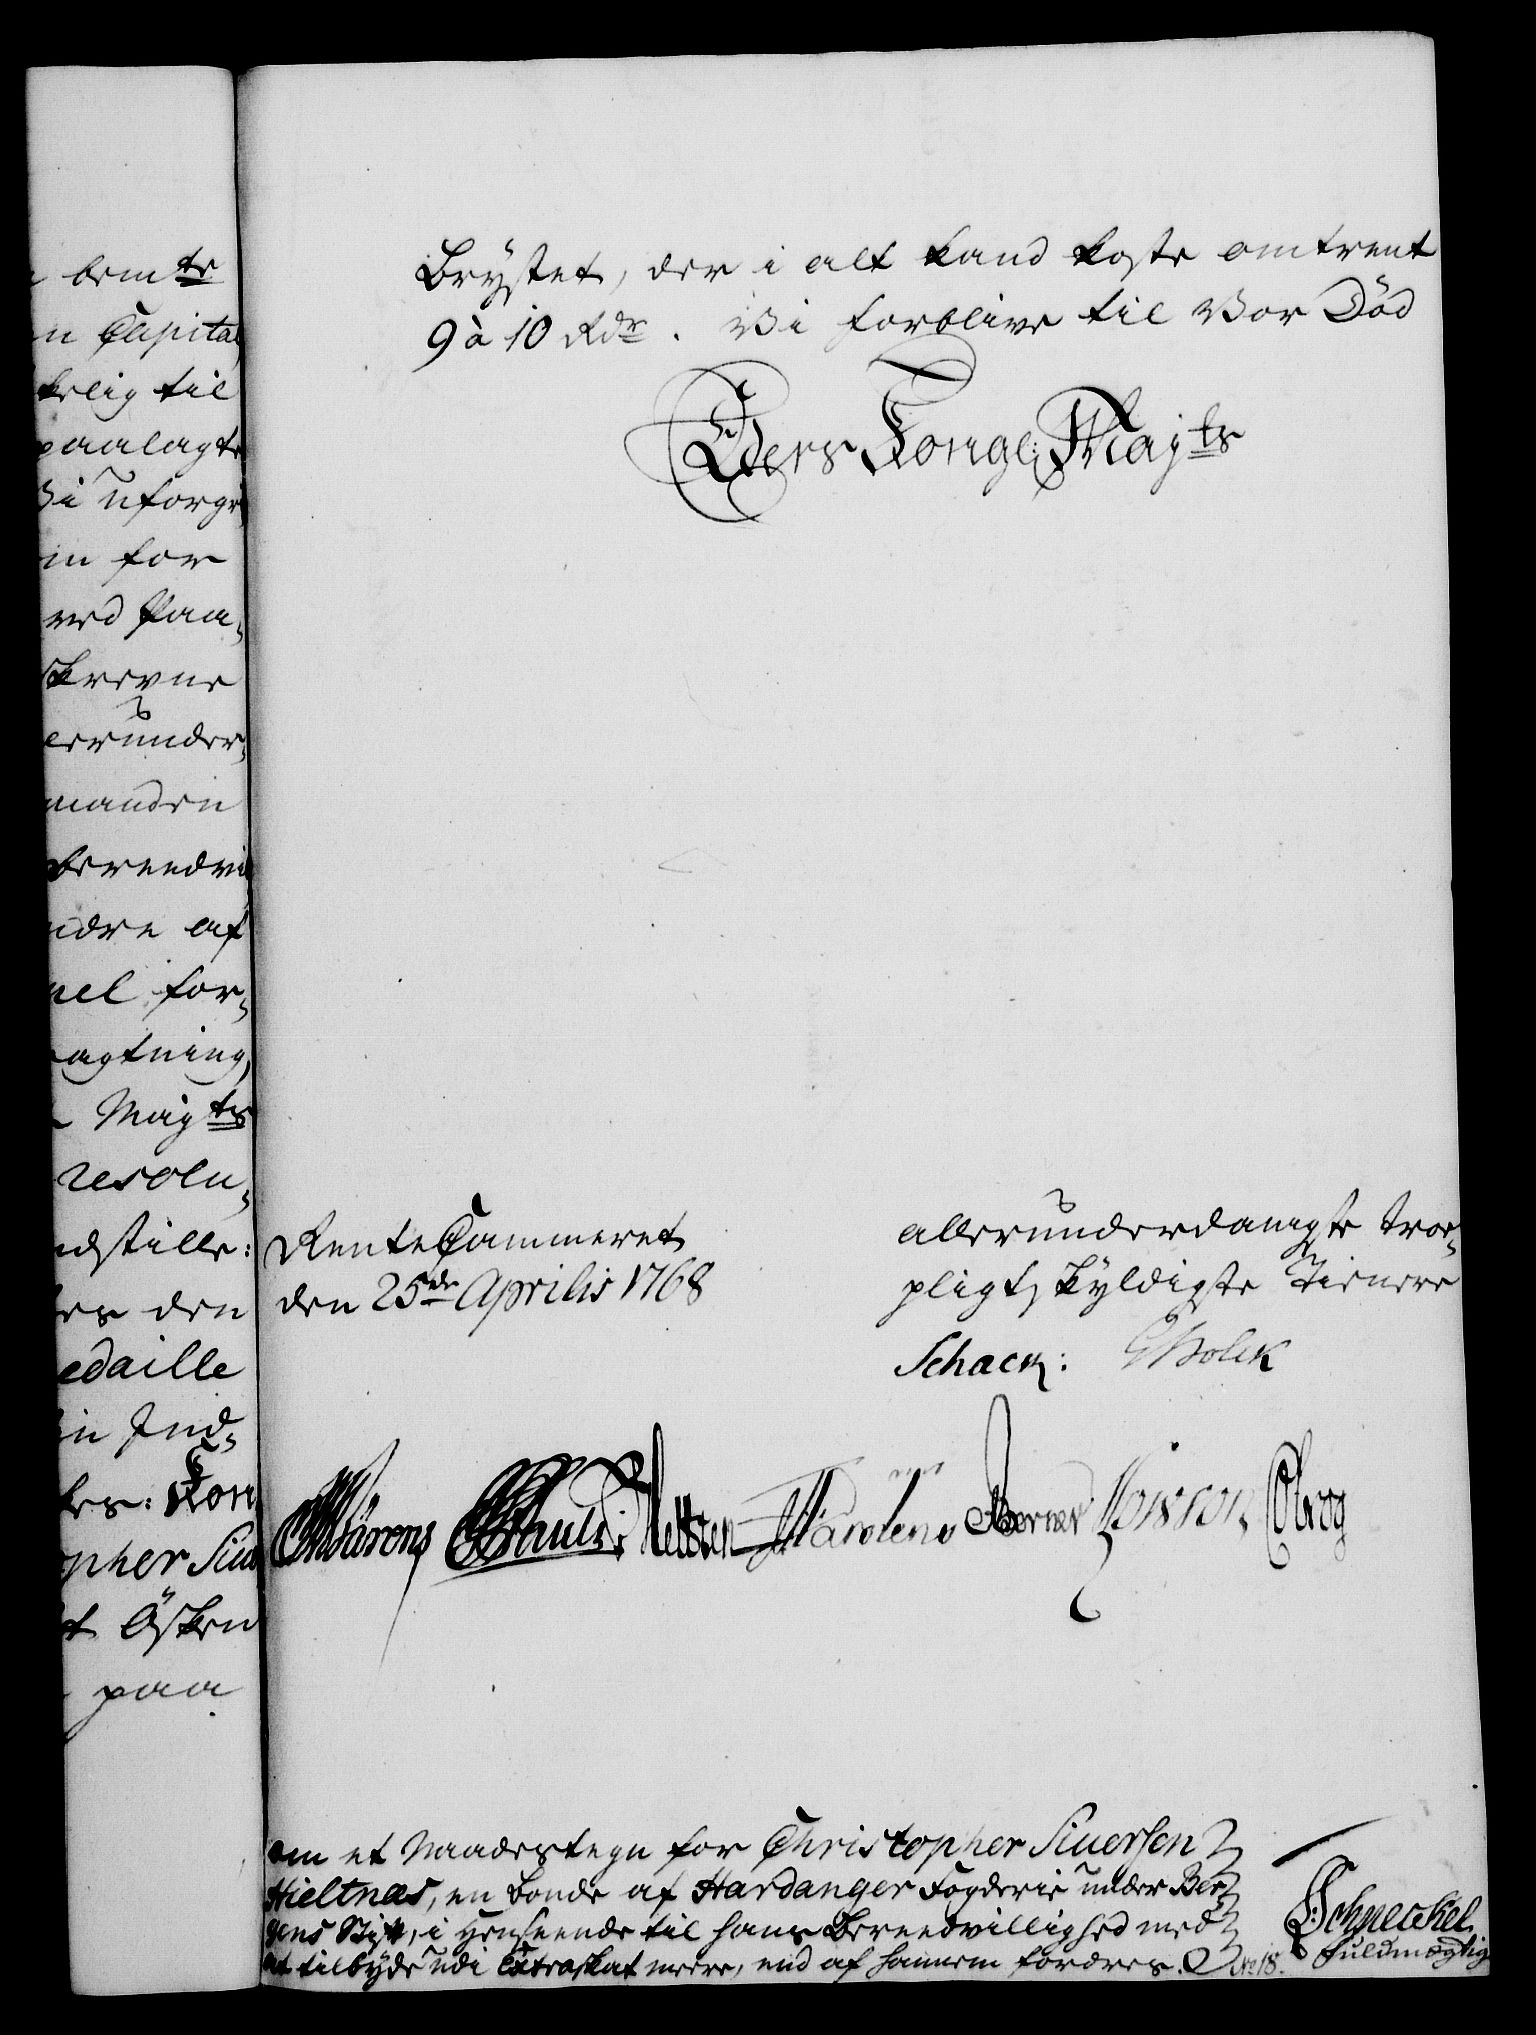 bemte
n Capital
kelig til
paalagte
Vi uforgri
in for
ved Paa,
skrevne
lerunder,
manden
beredvil
ndre af
nel for,
agtning,
Mayts
resolu,
ndstille:
res den
edaille
in Ind,
kes: Kon
opher Siu
t Ösken
paa
Brÿstet, der i alt kand koste omtrent
9 à 10 Rdr. Vi forblive til Vor Död
Eders Kongl: Mayts
RenteCammeret
den 25de Aprilis 1768
allerunderdanigste troe,
pligtskyldigste Tienere
Schack: Holck
Müllen Martens Berner Clörog
om et Naadestegn for Christopher Siversen
Hieltnæs, en Bonde af Hardanger Fogderie under Ber
gens Stift, i Henseende til hans Bereedvillighed med
at tilbÿde udi Extraskat meere, end af hannem fordres. No 18.
Schneckel
Fuldmægtig